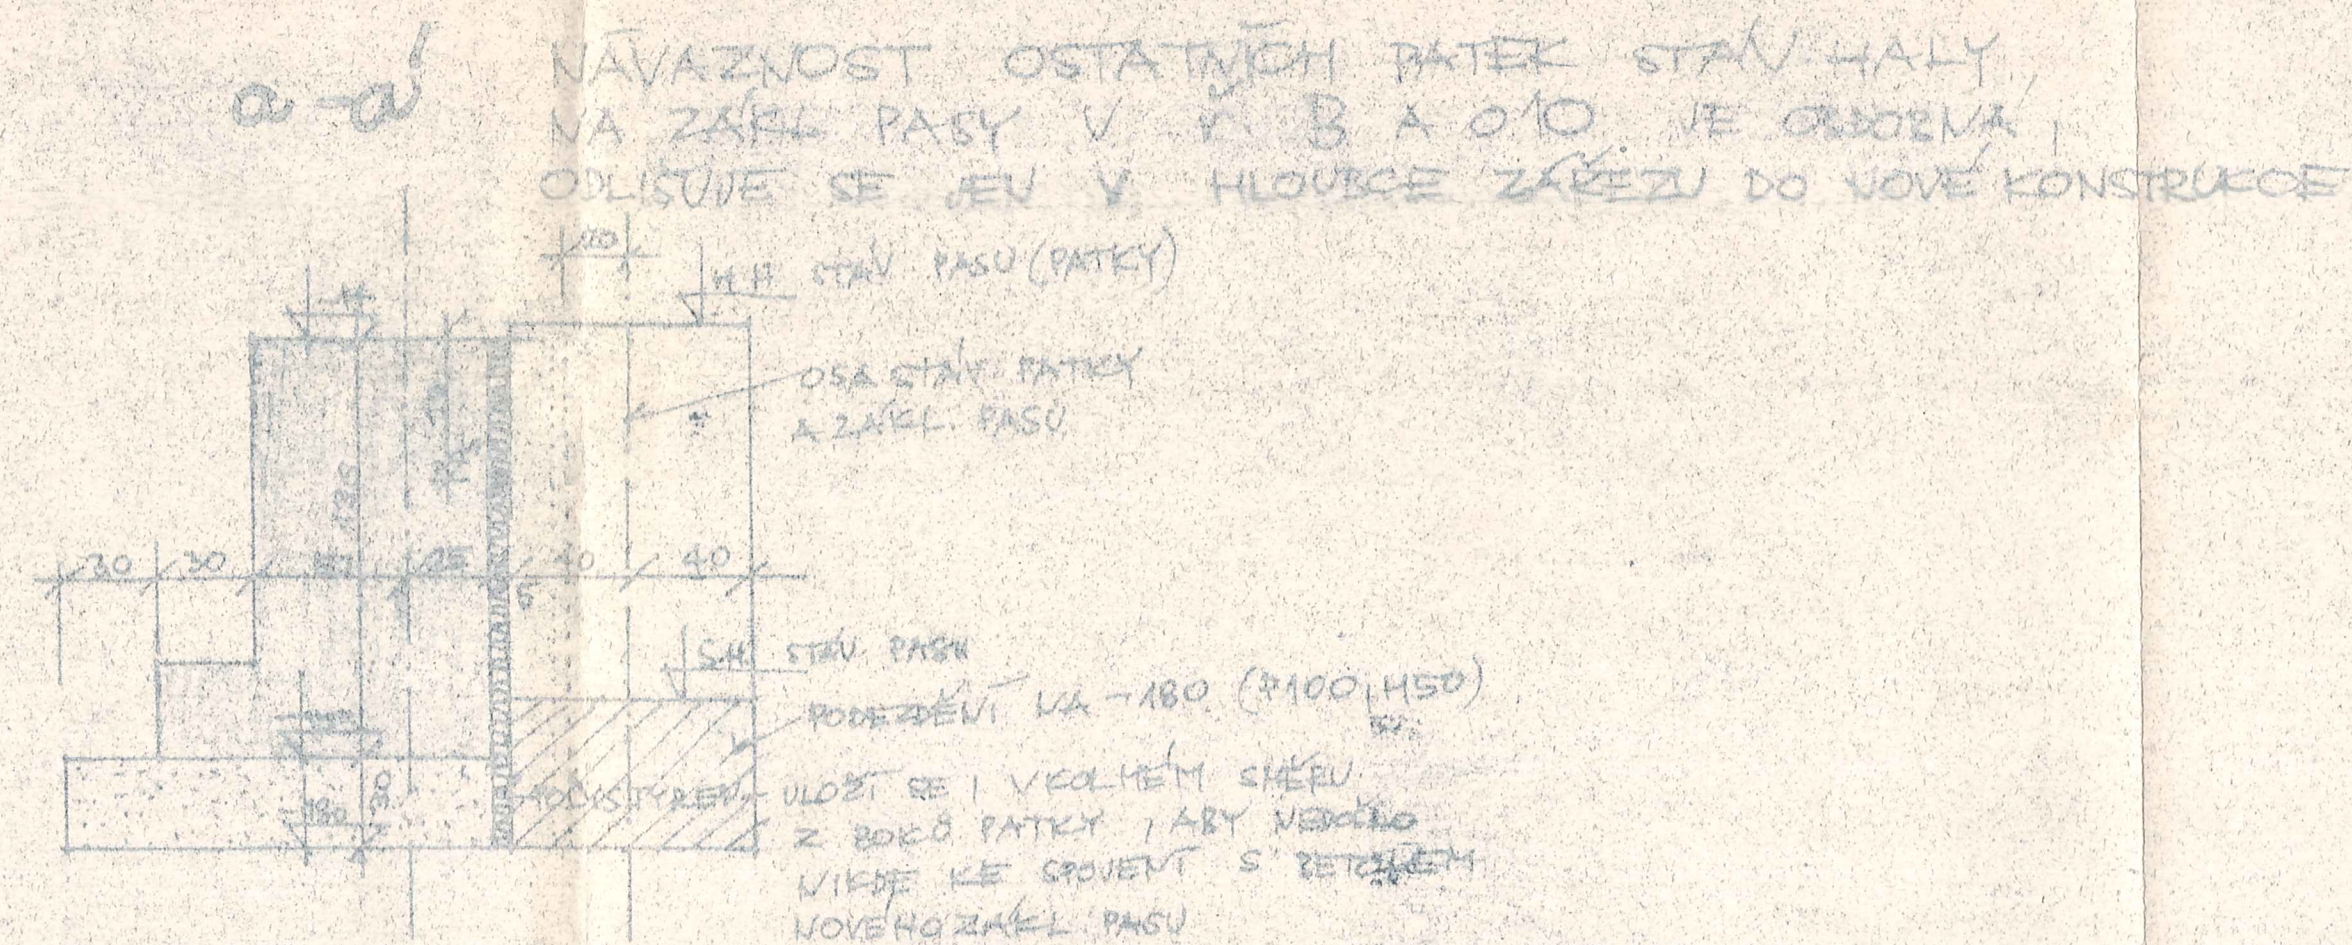 a - a'
NÁVAZNOST OSTATNÍCH PATEK STÁV. HALY,
NA ZÁKL PASY V Ř. B A O10 JE OBDOBNÁ,
ODLIŠUJE SE JEN V HLOUBCE ZÁŘEZU DO NOVÉ KONSTRUKCE
20
H H STÁV PASU (PATKY)
OSA STÁV. PATKY
A ZÁKL. PASU
30 30 45 40 40
5
S.H. STÁV PASU
PODEZDĚNÍ NA -180 (P100, M50)
POLYSTYREN - ULOŽÍ SE I V KOLMÉM SMĚRU
Z BOKŮ PATKY, ABY NEDOŠLO
NIKDE KE SPOJENÍ S BETONEM
NOVÉHO ZÁKL. PASU
180
30